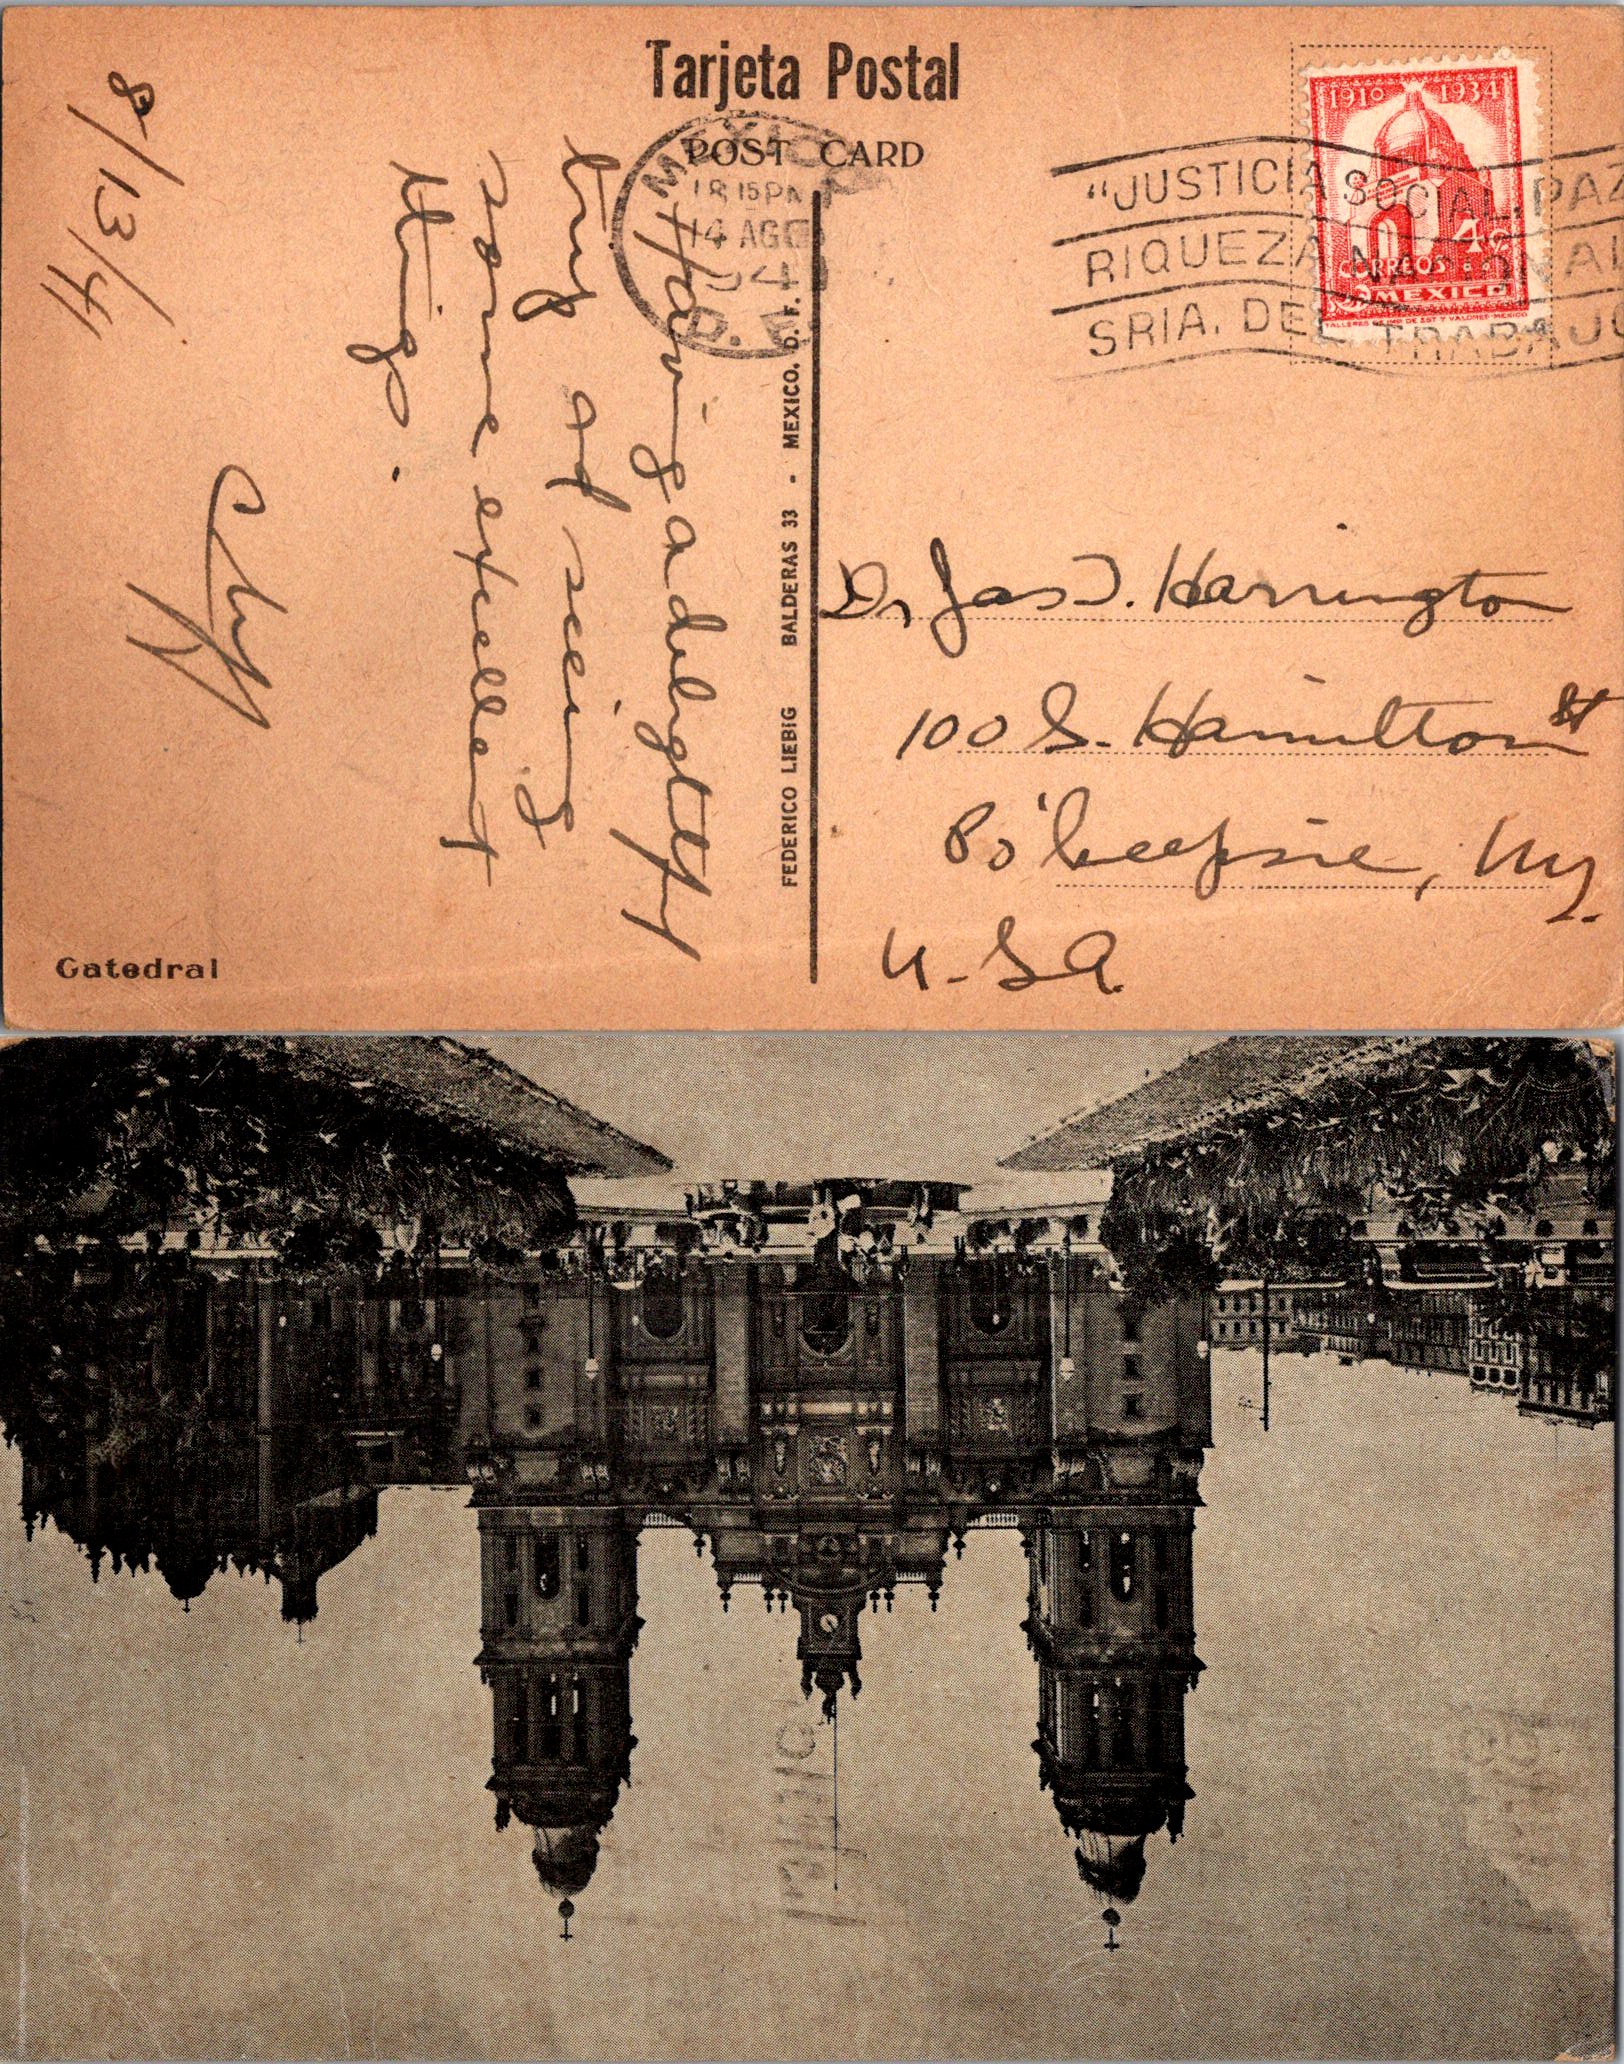 Tarjeta Postal
POST CARD
MEXICO
18 15 PM
14 AGO
194
D. F.
1910 1934
4¢
CORREOS
MEXICO
TALLERES DE IMP. DE EST. Y VALORES-MEXICO
"JUSTICIA SOCIAL, PAZ
RIQUEZA NACIONAL
SRIA. DEL TRABAJO
8/13/41
Having a delightful
trip and seeing
some excellent
things.
FEDERICO LIEBIG BALDERAS 33 - MEXICO, D. F.
Dr Jas T. Harrington
100 S. Hamilton St
Po'keepsie, NY.
U.S.A.
Catedral